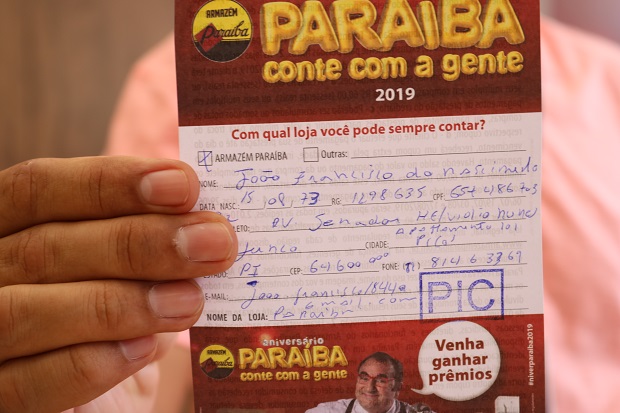 ARMAZÉM
Paraíba
PARAÍBA
conte com a gente
2019
Com qual loja você pode sempre contar?
ARMAZÉM PARAÍBA Outras:
NOME: João Francisco do Nascimento
DATA NASC. 15 08 73 RG: 1298635 CPF:
AV. Senador Helvidio Nunes
Apartamento 101
Junco CIDADE: Picos
PI CEP: 64600000 FONE:
E-MAIL: João.francisco
Gmail.com
NOME DA LOJA: Paraiba
PIC
aniversário
PARAÍBA
conte com a gente
Venha
ganhar
prêmios
#niverparaiba2019